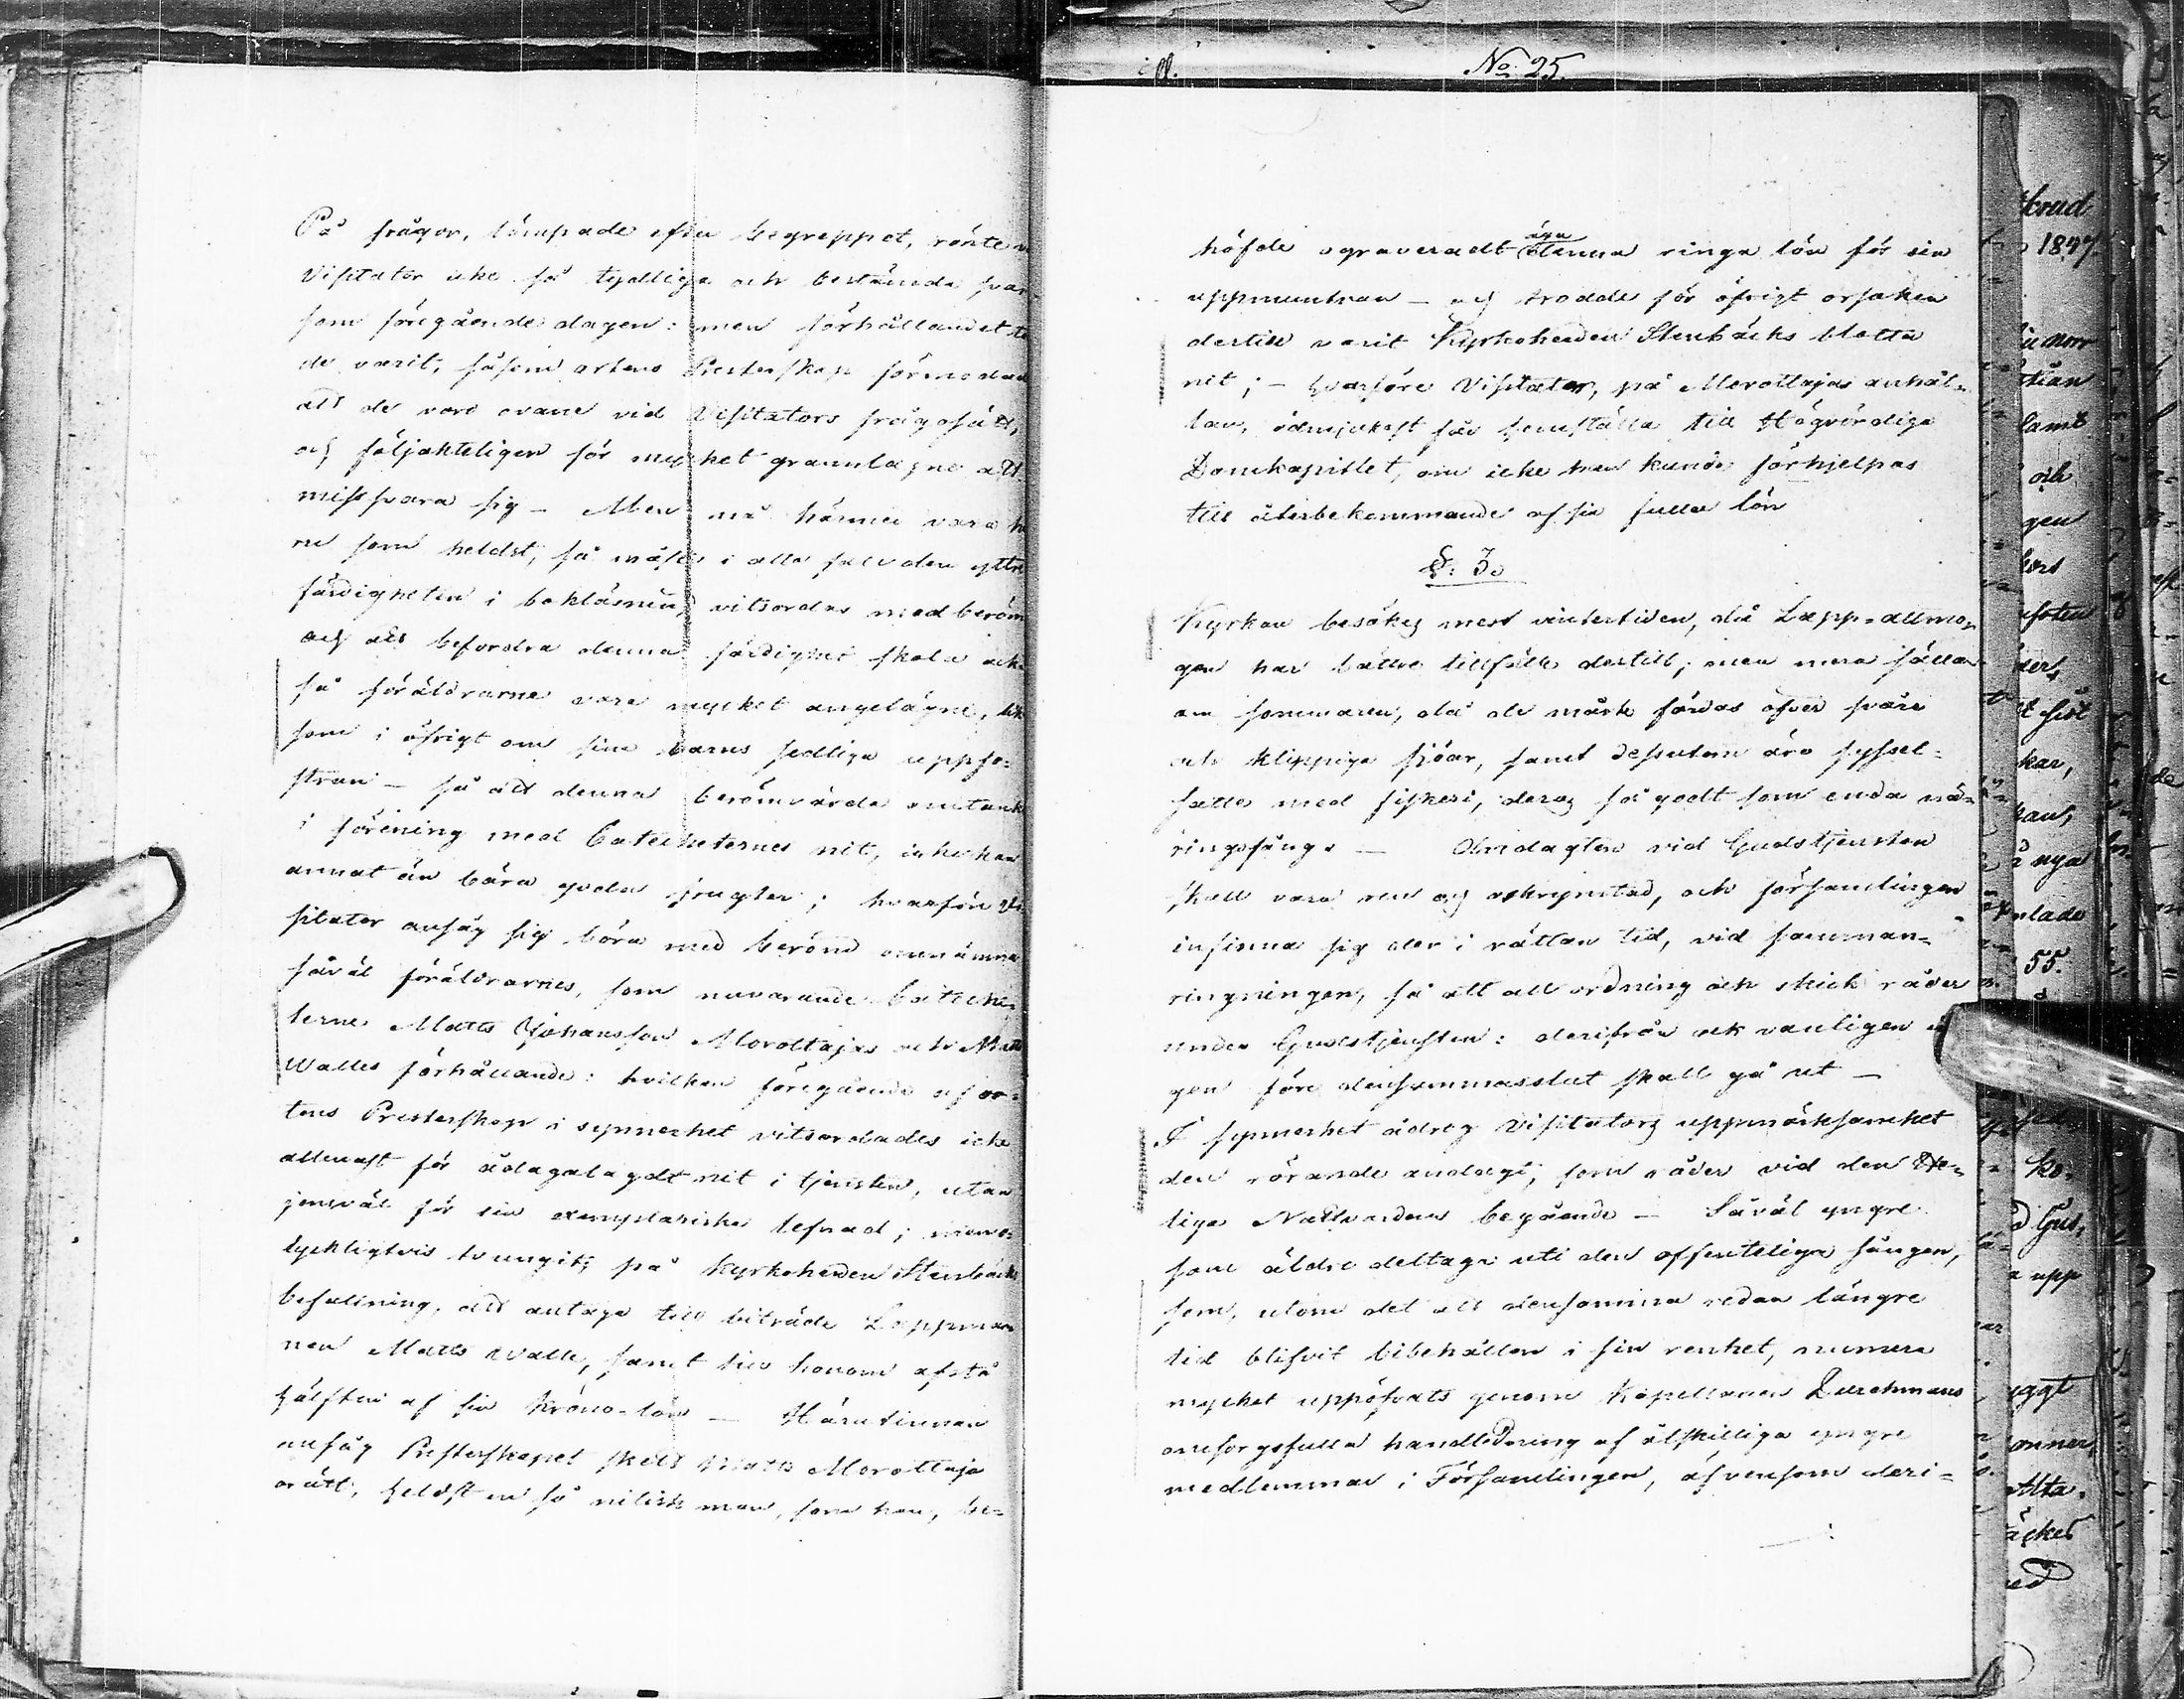 På frågor, lämpade efter begreppet, rönte
Visitator icke så tydliga och bestämda svar
som föregående dagen: men förhållandet
de varit, såsom ortens Presterskap förmodade
att de voro ovane vid Visitators frågosätt,
och följakteligen för mycket grannlagne att
missvara sig – Men må härmed vara
som heldst, så måste i alla fall den yttre
färdigheten i bokläsning vitsordas med beröm
och att befordra denna färdighet skola
föräldrarne vara mycket angelägne,
som i öfrigt om sina barns sedliga uppfo-
stran – så att denna berömvärda omtanke
i förening med Catecheternes nit, icke kan
annat än bära goda frugter; hvarföre Vi-
sitator ansåg sig böra med beröm omnämna
såväl föräldrarnes, som nuvarande Cateche-
ternes Matts Johansson Morottajas och
Walles förhållande: hvilken föregående af or-
tens Presterskap i synnerhet vitsordades icke
allenast för ådagalagdt nit i tjensten, utan
jemväl för sin exemplariska lefnad; men o-
lyckligtvis tvungits på Kyrkoherden Stenbäcks
befallning, att antaga till biträde Lappman-
nen Matts Walle, samt till honom afstå
hälften af sin Krono-lön – Härutinnan
ansåg Presterskapet skett Matts Morottaja
orätt, heldst en så nitisk man, som han, be-
No 25
höfde ograveradt äga denna ringa lön för sin
uppmuntran – och trodde för öfrigt orsaken
dertill varit Kyrkoherden Stenbäcks blotta
nit; – hvarföre Visitator, på Morottajas anhål-
lan, ödmjukast får hemställa till Högvördiga
Domkapitlet, om icke han kunde förhjelpas
till återbekommande af sin fulla lön
§. 3.
Kyrkan besökes mest vintertiden, då Lapp-allmo-
gen har bättre tillfälle dertill; men mera sällan
om sommaren, då de måste färdas öfver svåra
och klippiga sjöar, samt dessutom äro syssel-
satte med fiskeri, deras så godt som enda nä-
ringsfång. – Andagten vid Gudstjensten
skall vara ren och oskrymtad, och församlingen
infinna sig der i rättan tid, vid samman-
ringningen, så att all ordning och skick råder
under Gudstjensten: derifrån ock vanligen in-
gen före densammas slut skall gå ut –
I synnerhet ådrog Visitators uppmärksamhet
den rörande andagt, som råder vid den He-
liga Nattvardens begående – Såväl yngre
som äldre deltaga uti den offenteliga sången,
som, utom det att densamma redan längre
tid blifvit bibehållen i sin renhet, numera
mycket uppöfvats genom Kapellanen Durchmans
omsorgsfulla handledning af åtskilliga yngre
medlemmar i Församlingen, äfvensom deri-
1847.
och
gen
kar,
55.
upp